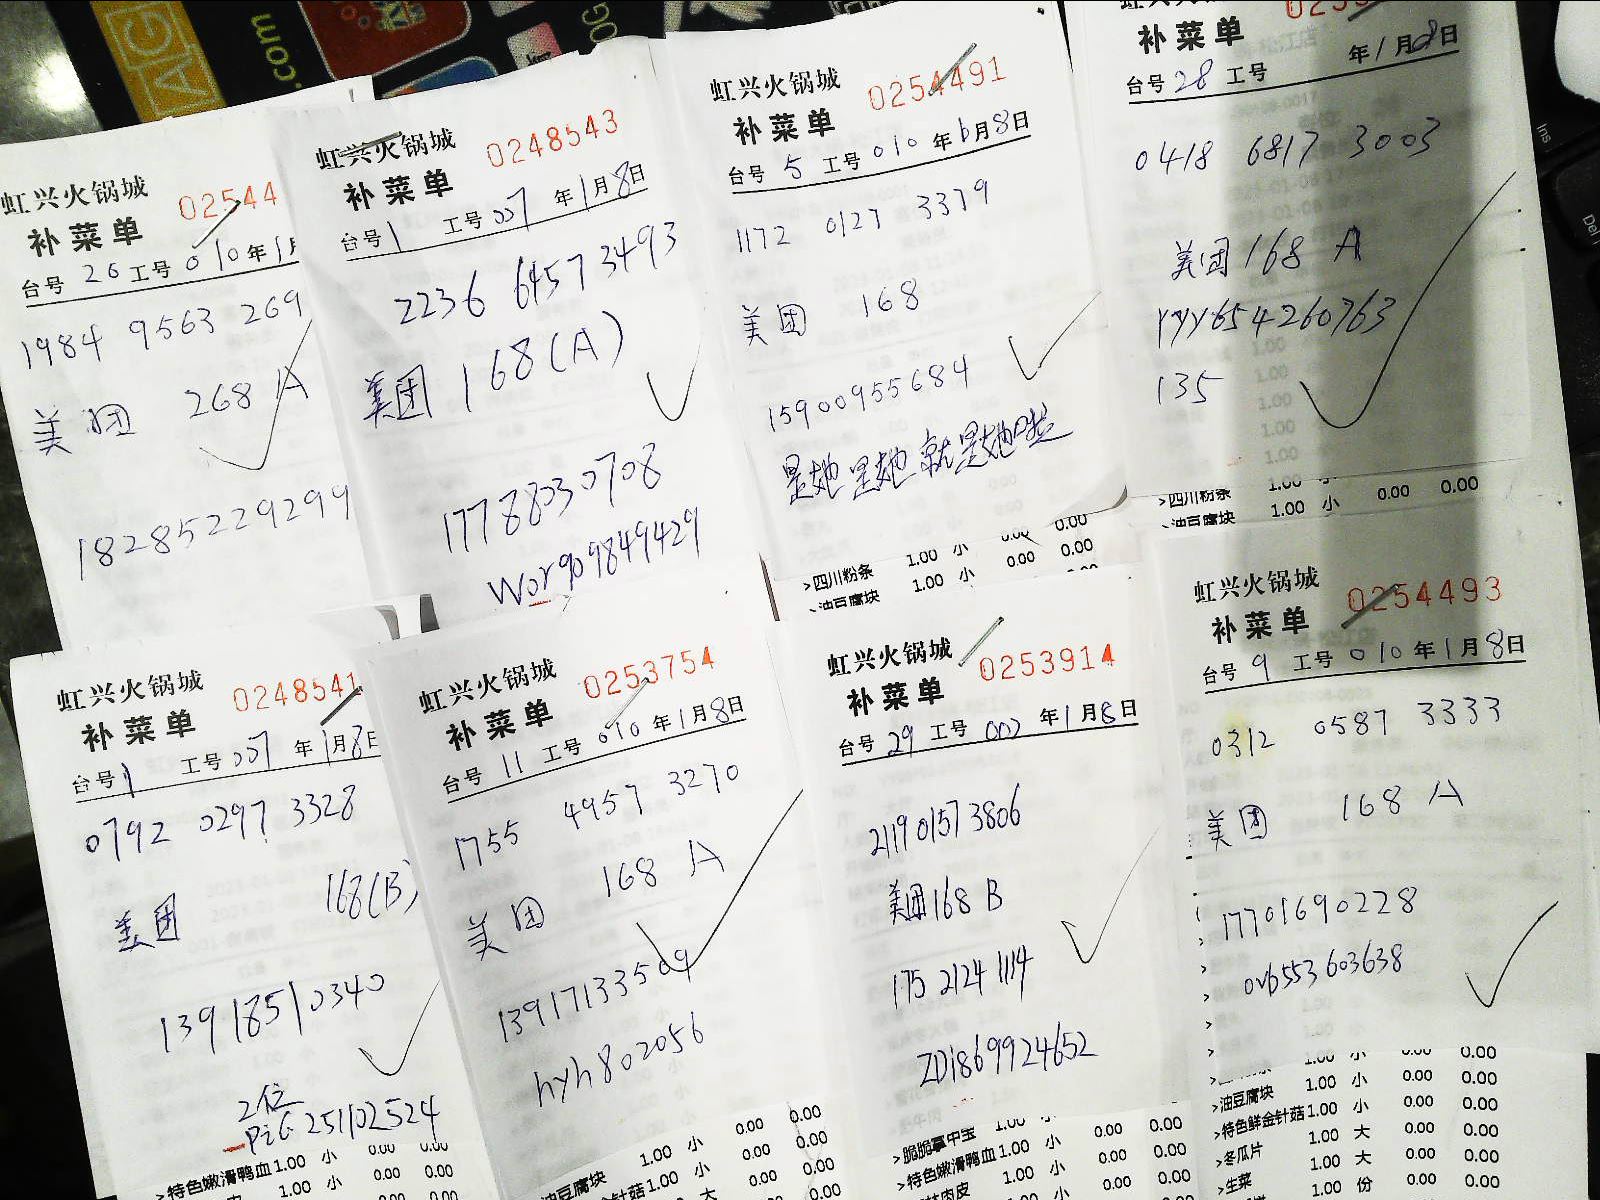 AG
.com
虹兴火锅城
补菜单
02544
台号 26 工号 010 年1月
1984 9563 269
美团 268 A
18285229299
虹兴火锅城
补菜单
0248543
台号 1 工号 007 年1月8日
2236 6457 3493
美团 168(A)
17788030708
Wor909849429
虹兴火锅城
补菜单
0254491
台号 5 工号 010 年6月8日
1172 0127 3379
美团 168
15900955684
是她是她就是她啦
>四川粉条 1.00 小 0.00 0.00
>油豆腐块 1.00 小 0.00 0.00
补菜单
台号 28 工号 年1月8日
0418 6817 3003
美团168 A
yyy654260763
135
>四川粉条 1.00 小 0.00 0.00
>油豆腐块 1.00 小
虹兴火锅城
补菜单
0248541
台号 1 工号 007 年1月8日
0792 0297 3328
美团 168(B)
13918510340
2位
PiG251102524
>特色嫩滑鸭血 1.00 小 0.00 0.00
1.00 小 0.00 0.00
虹兴火锅城
补菜单
0253754
台号 11 工号 010 年1月8日
1755 4957 3270
美团 168 A
13917133509
hyh802056
小 0.00 0.00
油豆腐块 1.00 小 0.00 0.00
金针菇 1.00 大 0.00 0.00
虹兴火锅城
补菜单
0253914
台号 29 工号 002 年1月8日
2119 0157 3806
美团168 B
175 2124 1114
ZDi869924652
>脆脆掌中宝 1.00 小 0.00 0.00
>特色嫩滑鸭血 1.00 小 0.00 0.00
肉皮 1.00 小 0.00 0.00
虹兴火锅城
补菜单
0254493
台号 9 工号 010 年1月8日
0312 0587 3333
美团 168 A
17701690228
ovb553603638
1.00 小 0.00 0.00
>油豆腐块 1.00 小 0.00 0.00
>特色鲜金针菇 1.00 小 0.00 0.00
>冬瓜片 1.00 大 0.00 0.00
>生菜 1.00 大 0.00 0.00
1.00 份 0.00 0.00
Ins
Del